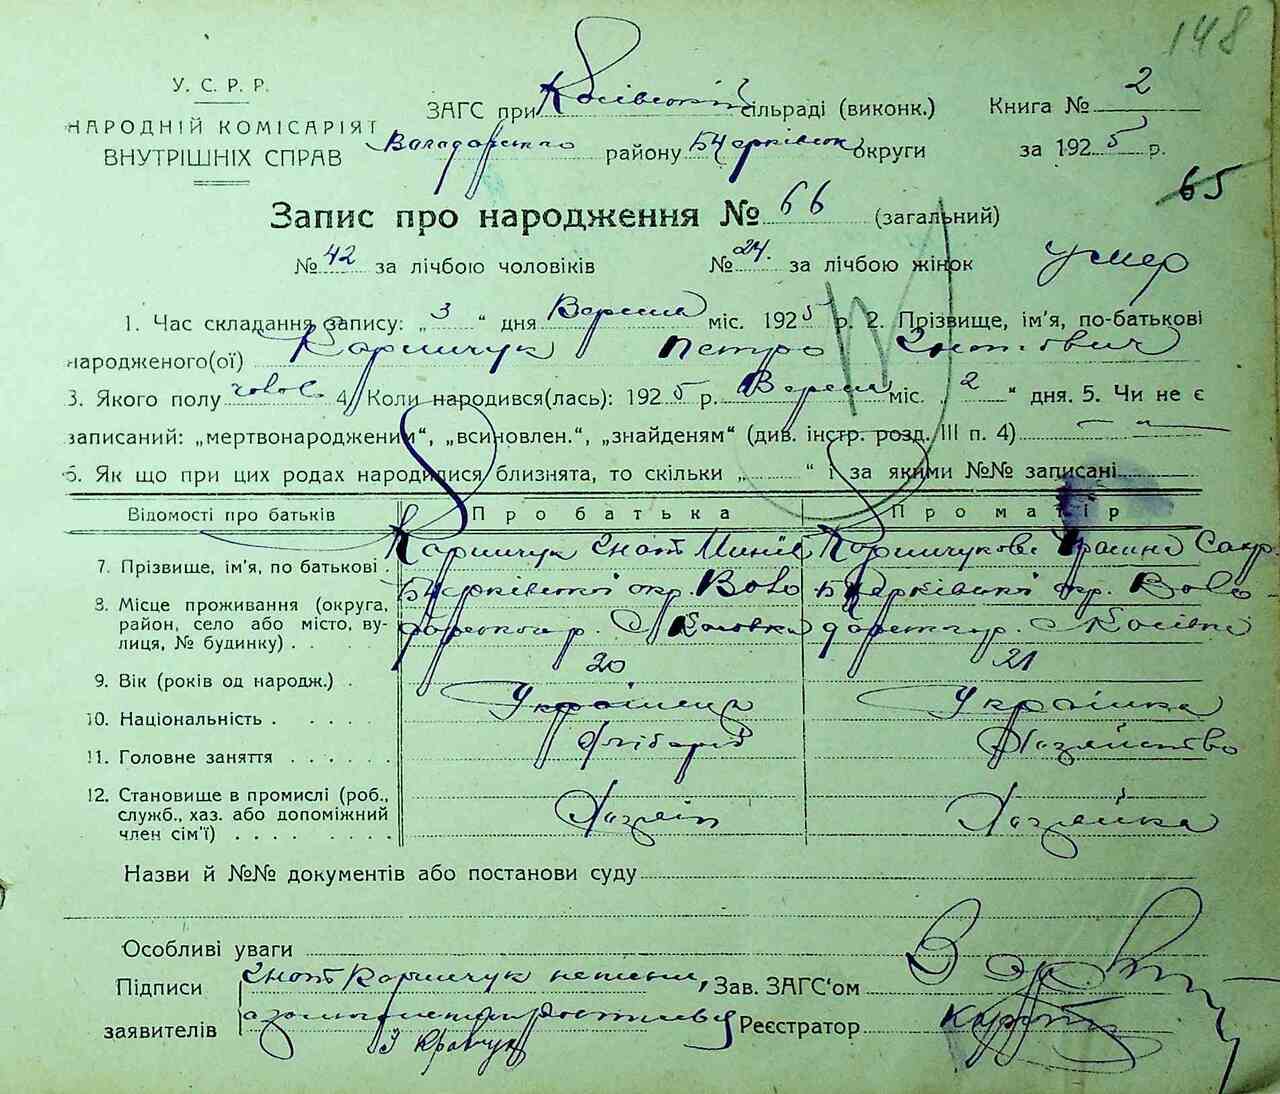 148
У. С. Р. Р.
НАРОДНІЙ КОМІСАРІЯТ
ВНУТРІШНІХ СПРАВ
ЗАГС при Косівській сільраді (виконк.)
району Бцерківськ округи
Книга № 2
за 1925 р.
65
Запис про народження № 66 (загальний)
№ 42 за лічбою чоловіків № 24. за лічбою жінок
умер
1. Час складання запису: „ 3 “ дня Вересня міс. 1925 р. 2. Прізвище, ім'я, по-батькові
народженого(ої) Петро Гнатович
3. Якого полу чолов. 4. Коли народився(лась): 1925 р. Вересня міс. „ 2 “ дня. 5. Чи не є
записаний: „мертвонародженим“, „всиновлен.“, „знайденям“ (див. інстр. розд. III п. 4)
6. Як що при цих родах народилися близнята, то скільки „ “ і за якими №№ записані
Відомості про батьків Про батька Про матір
7. Прізвище, ім'я, по батькові. Гнат
8. Місце проживання (округа, Бцерківської окр. Воло Бцерківської окр. Воло-
район, село або місто, ву- дарського р. с. дарськ р. с. Косівка
лиця, № будинку)
9. Вік (років од народж.) 20 21
10. Національність Українець Українка
11. Головне заняття Хлібороб Хазяйство
12. Становище в промислі (роб., Хазяїн Хазяйка
служб., хаз. або допоміжний
член сім'ї)
Назви й №№ документів або постанови суду
Особливі уваги
Підписи Гнат
заявителів
Зав. ЗАГС'ом
Реєстратор